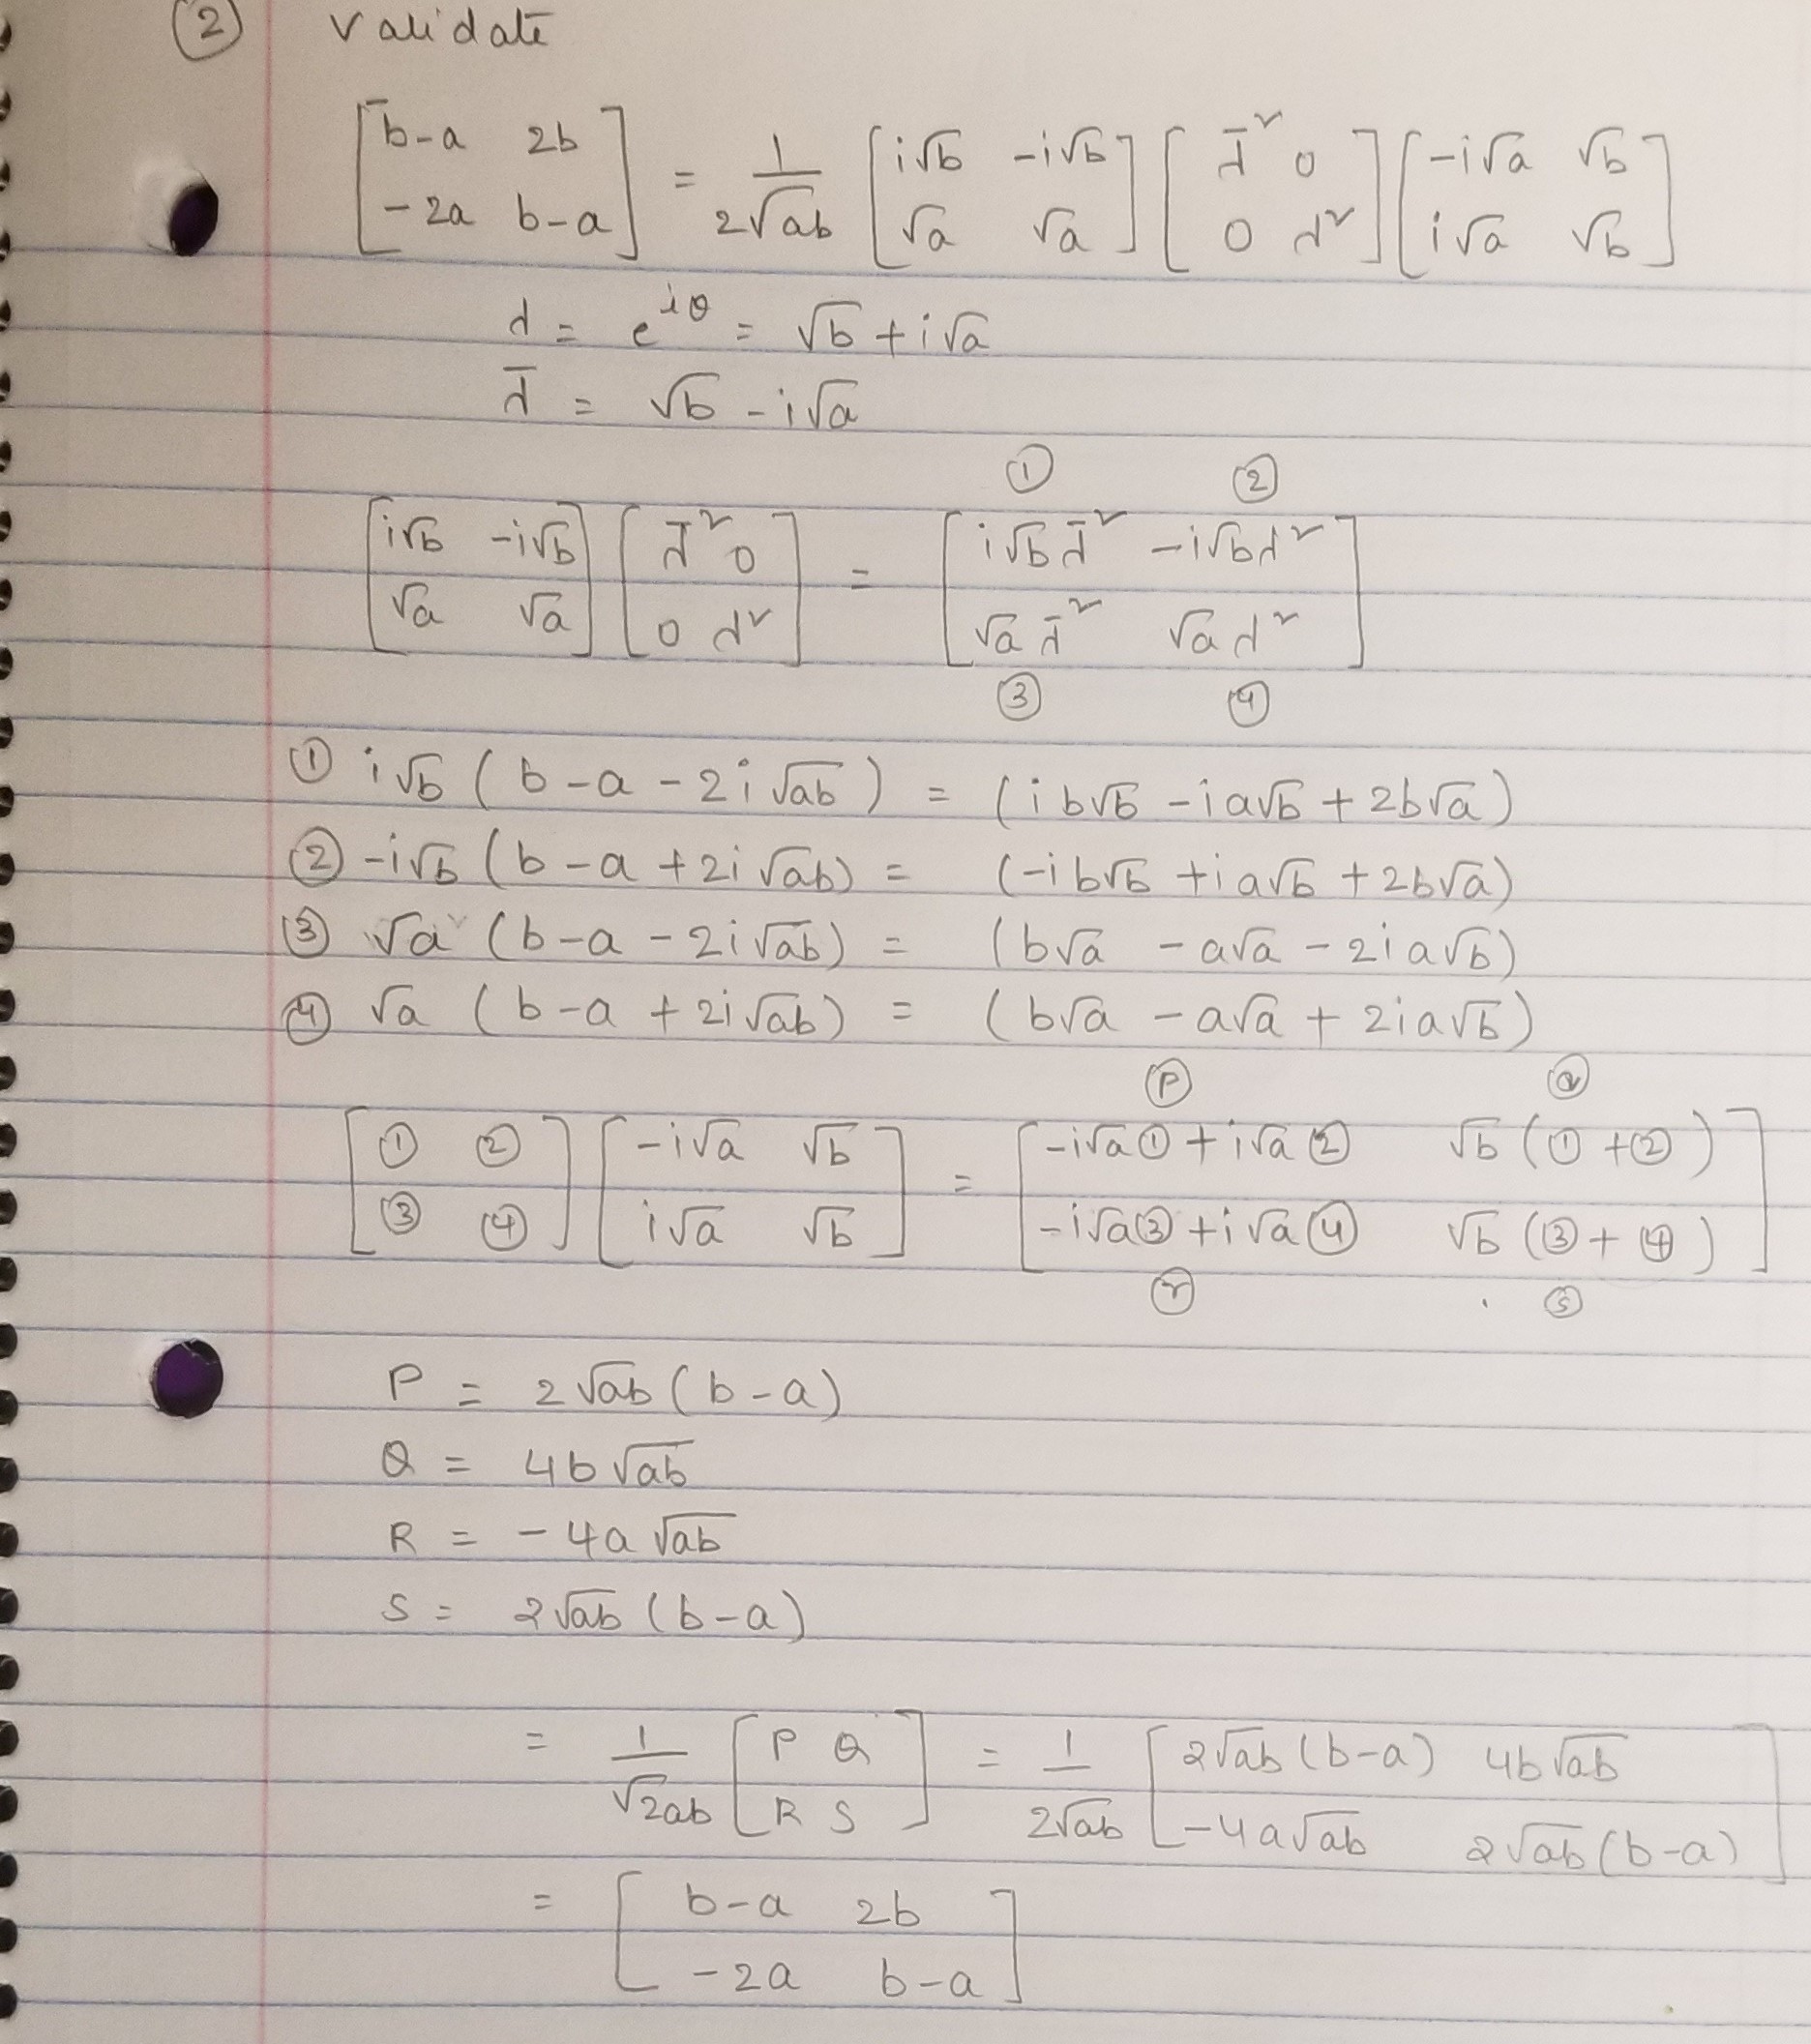 ② validate
[b-a 2b; -2a b-a] = 1/(2√ab) [i√b -i√b; √a √a] [λ̄² 0; 0 λ²] [-i√a √b; i√a √b]
λ = e^{iθ} = √b + i√a
λ̄ = √b - i√a
① ②
[i√b -i√b; √a √a] [λ̄² 0; 0 λ²] = [i√b λ̄² -i√b λ²; √a λ̄² √a λ²]
③ ④
① i√b (b-a-2i√ab) = (ib√b - ia√b + 2b√a)
② -i√b (b-a+2i√ab) = (-ib√b + ia√b + 2b√a)
③ √a (b-a-2i√ab) = (b√a - a√a - 2ia√b)
④ √a (b-a+2i√ab) = (b√a - a√a + 2ia√b)
Ⓟ Ⓠ
[① ②; ③ ④] [-i√a √b; i√a √b] = [-i√a① + i√a② √b(①+②); -i√a③ + i√a④ √b(③+④)]
ⓡ Ⓢ
P = 2√ab (b-a)
Q = 4b√ab
R = -4a√ab
S = 2√ab (b-a)
= 1/√2ab [P Q; R S] = 1/(2√ab) [2√ab(b-a) 4b√ab; -4a√ab 2√ab(b-a)]
= [b-a 2b; -2a b-a]